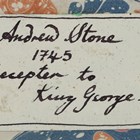 Andrew Stone
1745
ecepter to
King George.